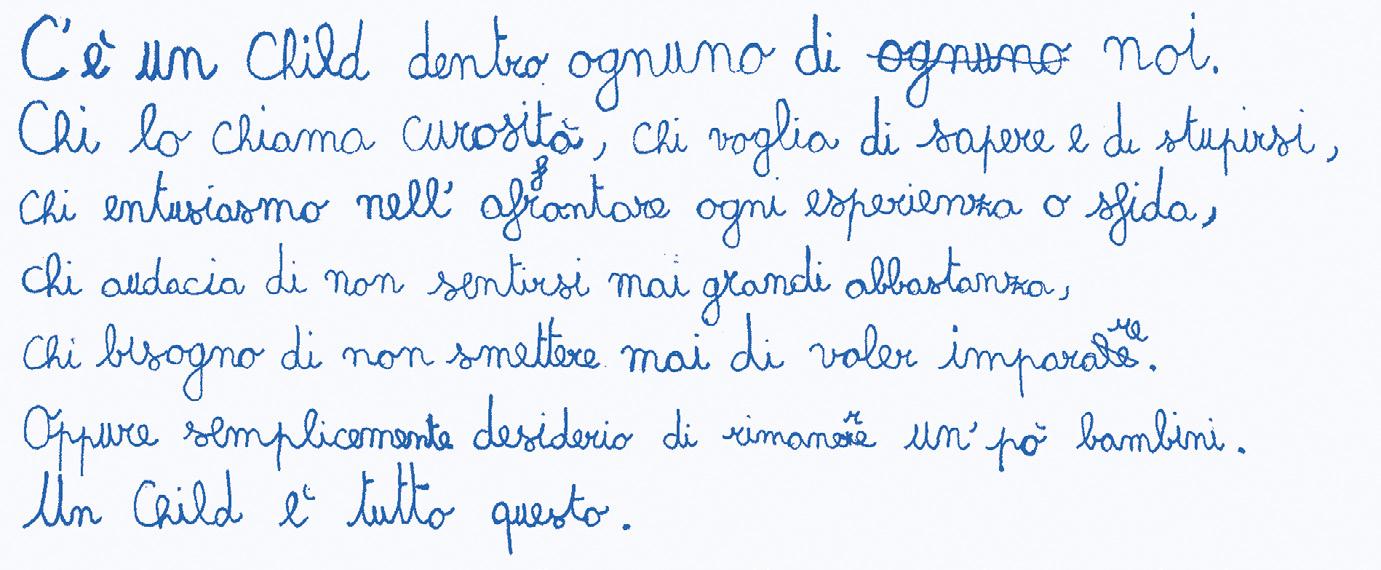 C'è un Child dentro ognuno di ognuno noi.
Chi lo chiama curosità, chi voglia di sapere e di stupirsi,
chi entusiasmo nell' affrontare ogni esperienza o sfida,
chi audacia di non sentirsi mai grandi abbastanza,
chi bisogno di non smettere mai di voler imparare.
Oppure semplicemente desiderio di rimanere un' pò bambini.
Un Child è tutto questo.